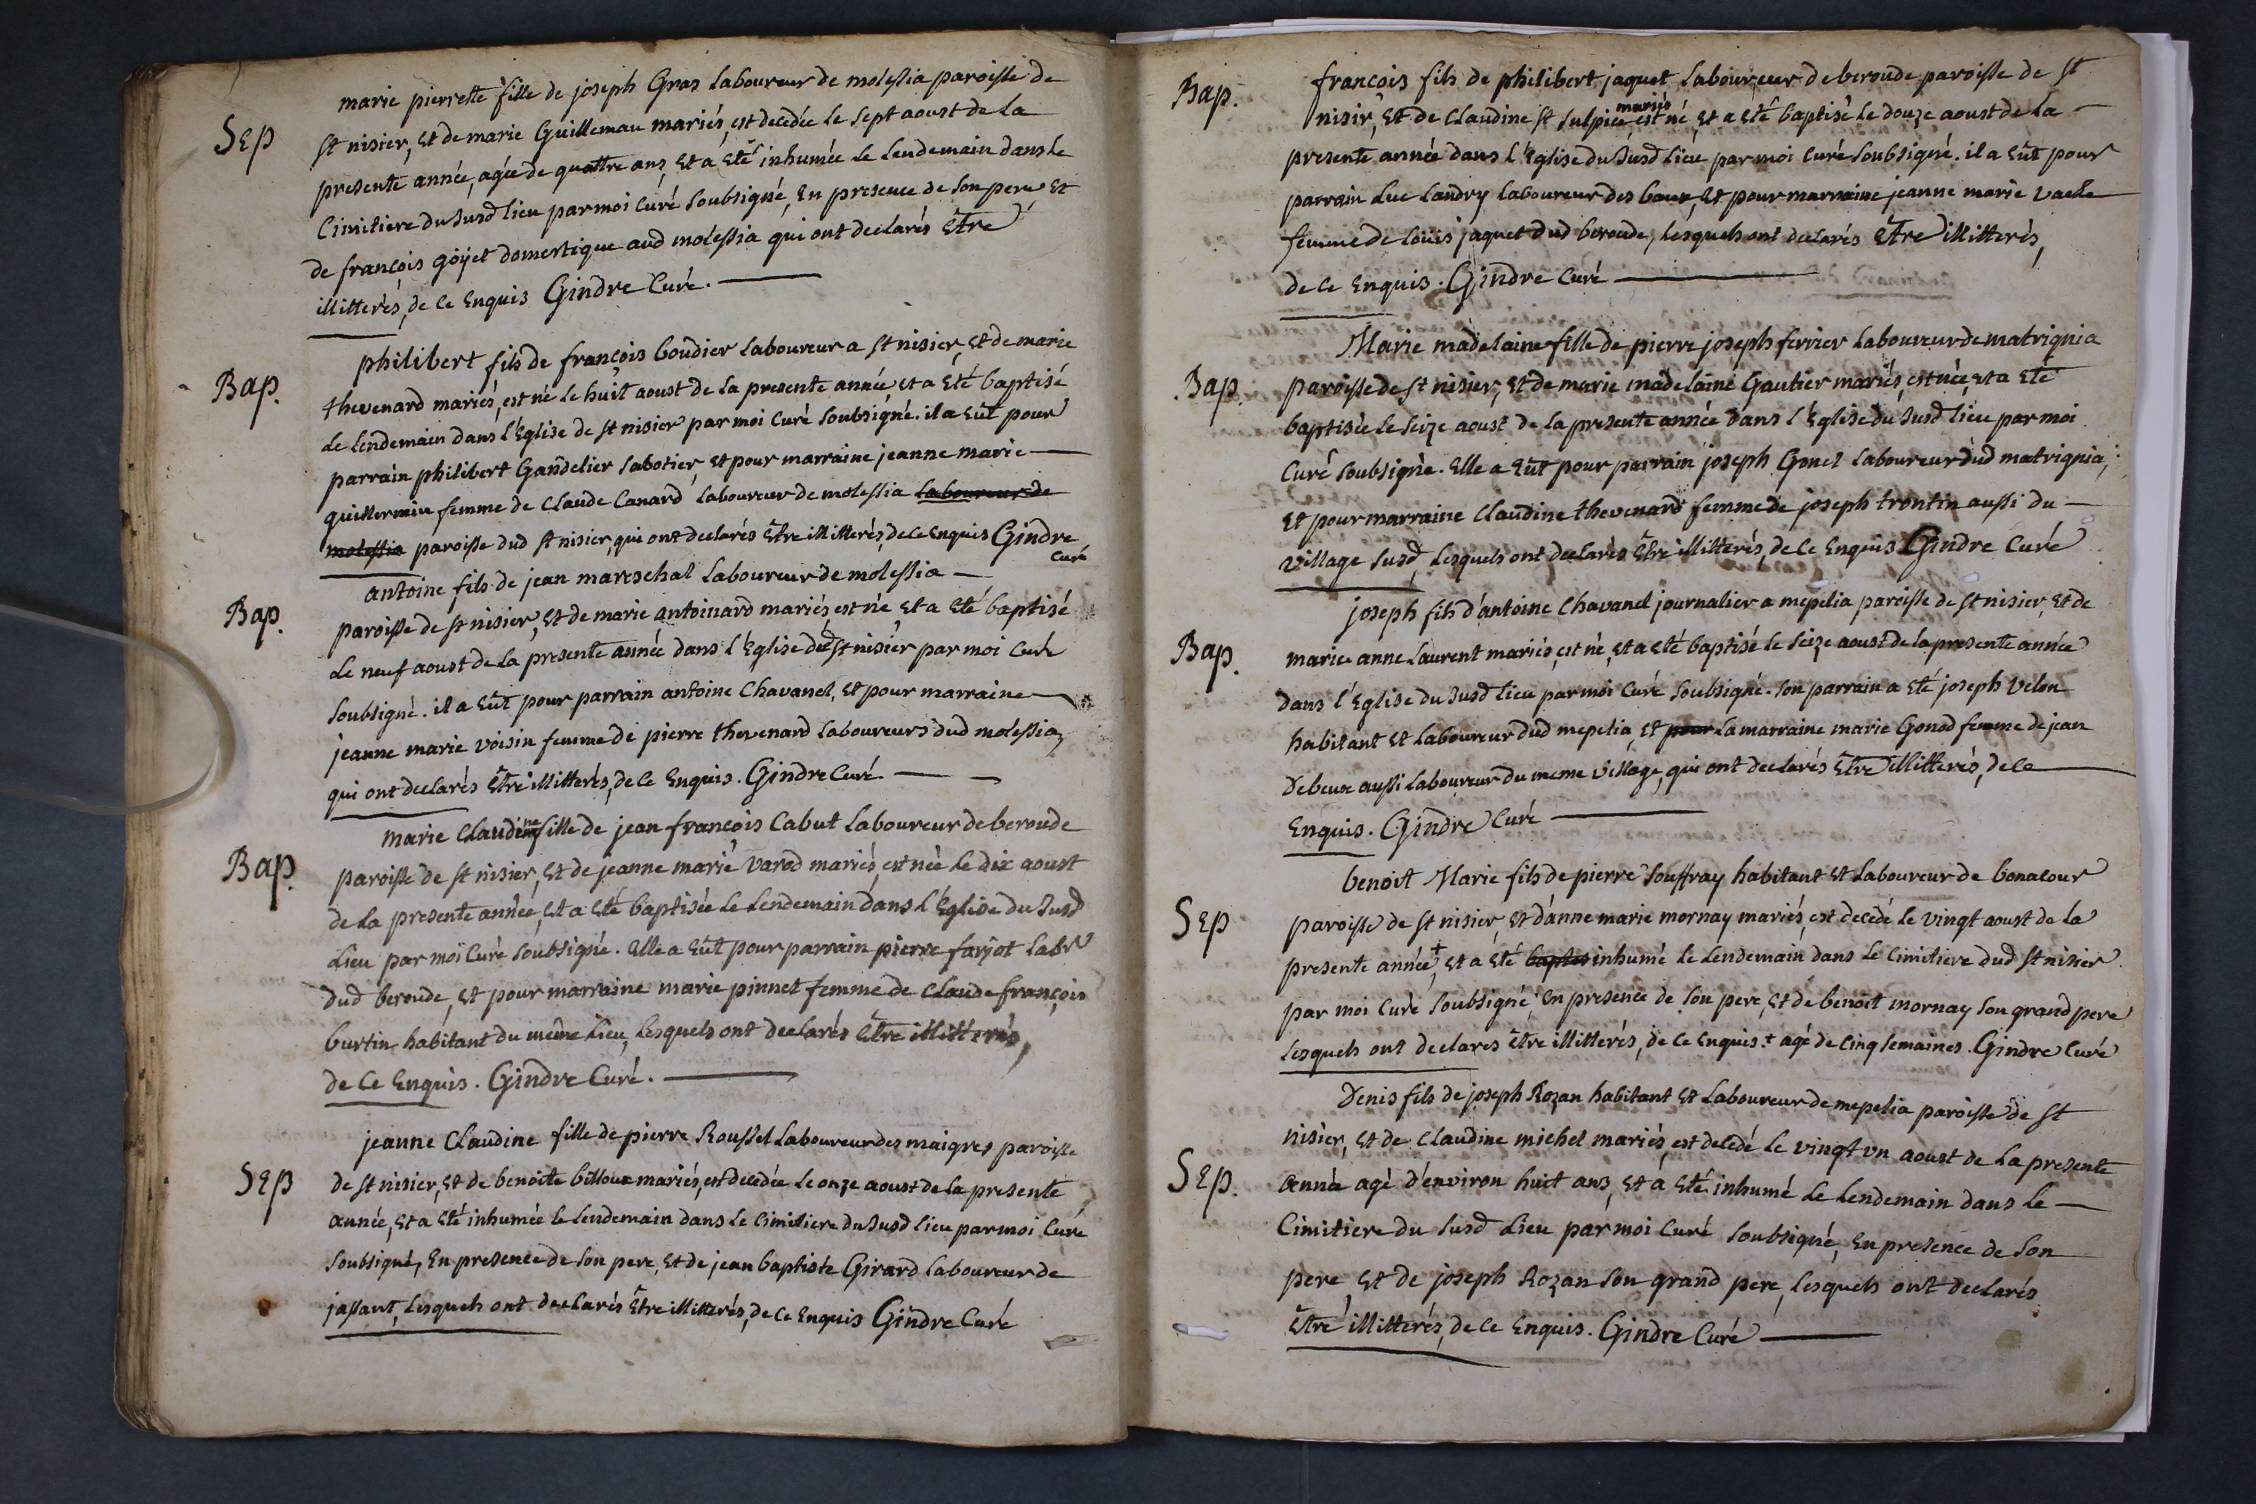 marie pierrette fille de joseph Gras Laboureur de molessia paroisse de
Sep
st nisier, et de marie Guillemau mariés, est decedée le sept aoust de la
presente année, agée de quattre ans, et a eté inhumée le lendemain dans le
Cimitiere du susd lieu par moi Curé soubsigné, En presence de son pere, et
de françois goÿet domestique aud molessia qui ont declarés Etre
illitterés, de ce Enquis Gindre Curé.
philibert fils de françois boudier Laboureur a st nisier, et de marie
Bap.
thevenard mariés, est né le huit aoust de la presente année et a eté baptisé
le lendemain dans l'Eglise de st nisier par moi Curé soubsigné. il a Eüt pour
parrain philibert Gandelier sabotier, et pour marraine jeanne marie
guillermin femme de Claude Canard Laboureur de molessia Laboureur de
molessia paroisse dud st nisier, qui ont declarés Etre illitterés, de ce Enquis Gindre
Curé
antoine fils de jean mareschal Laboureur de molessia
Bap.
paroisse de st nisier, et de marie antoinard mariés, est né, et a eté baptisé
le neuf aoust de la presente année dans l'Eglise dud st nisier par moi Curé
soubsigné. il a Eüt pour parrain antoine Chavanel, et pour marraine
jeanne marie voisin femme de pierre thevenard Laboureurs dud molessia,
qui ont declarés Etre illitterés, de ce Enquis. Gindre Curé
marie Claudine fille de jean françois Cabut Laboureur de beroude
Bap.
paroisse de st nisier, et de jeanne marie varod mariés, est née le dix aoust
de la presente année, et a eté baptisée le lendemain dans l'Eglise du susd
Lieu par moi Curé soubsigné. Elle a Eüt pour parrain pierre farjot labr
dud beroude, et pour marraine marie pinnet femme de Claude françois
burtin habitant du même Lieu, Lesquels ont declarés Etre illitterés,
de ce Enquis. Gindre Curé.
jeanne Claudine fille de pierre Roussel Laboureur des maigres paroisse
Sep
de st nisier, et de benoite billoux mariés, est decedée le onze aoust de la presente
année, et a eté inhumée le lendemain dans le Cimitiere du susd lieu par moi Curé
soubsigné, En presence de son pere, et de jean baptiste Girard Laboureur de
jassaut, Lesquels ont declarés Etre illitterés, de ce Enquis Gindre Curé
françois fils de philibert jaquet Laboureur de beroude paroisse de st
Bap.
nisir, et de Claudine st sulpice mariés est né, et a eté baptisé le douze aoust de la
presente année dans l'Eglise du susd lieu par moi Curé soubsigné. il a Eüt pour
parrain Luc Landry Laboureur des baux, et pour marraine jeanne marie
femme de Loüis jaquet dud beroude, Lesquels ont declarés Etre illitterés,
de ce Enquis. Gindre Curé
Marie madelaine fille de pierre joseph ferrier Laboureur de matrignia
Bap.
paroisse de st nisier, et de marie madelaine Gautier mariés, est née, et a eté
baptisée le seize aoust de la presente année dans l'Eglise du susd lieu par moi
Curé soubsigné. Elle a Eüt pour parrain joseph Gonet Laboureur dud matrignia,
et pour marraine Claudine thevenard femme de joseph trontin aussi du
village susd, Lesquels ont declarés Etre illitterés, de ce Enquis Gindre Curé
joseph fils d'antoine Chavanel journalier a mepelia paroisse de st nisier, et de
Bap.
marie anne Laurent mariés, est né, et a eté baptisé le seize aoust de la presente année
dans l'Eglise du susd lieu par moi Curé soubsigné. son parrain a eté joseph velon
habitant et Laboureur dud mepelia, et pour La marraine marie Gonod femme de jean
debeux aussi Laboureur du meme village, qui ont declarés Etre illitterés, de ce
Enquis. Gindre Curé
benoit Marie fils de pierre souffray habitant et Laboureur de bonacour
Sep
paroisse de st nisier, et d'anne marie mornay mariés, est decedé le vingt aoust de la
presente année+, et a eté baptisé inhumé le lendemain dans le Cimitiere dud st nisier
par moi Curé soubsigné, En presence de son pere, et de benoit mornay son grand pere
Lesquels ont declarés Etre illitterés, de ce Enquis. + agé de cinq semaines. Gindre Curé
Denis fils de joseph Rozan habitant et Laboureur de mepelia paroisse de st
Sep.
nisier, et de Claudine michel mariés, est decedé le vingt un aoust de la presente
année agé d'environ huit ans, et a eté inhumé le lendemain dans le
Cimitiere du susd Lieu par moi Curé soubsigné, En presence de son
pere, et de joseph Rozan son grand pere, Lesquels ont declarés
Etre illitterés, de ce Enquis. Gindre Curé